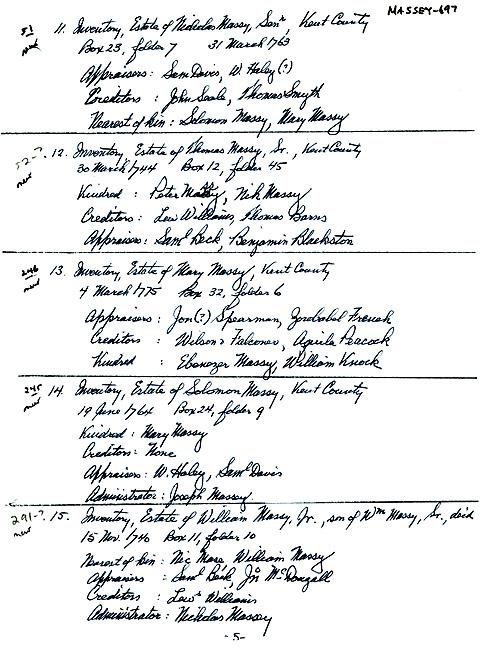 MASSEY-697
51 ment 11. Inventory, Estate of Nicholas Massy, Senr, Kent County
Box 23, folder 7 31 March 1763
Appraisers: Sam Davis, W. Haley (?)
Creditors: John Seale, Thomas Smyth
Nearest of Kin: Solomon Massy, Mary Massy
52-? ment 12. Inventory, Estate of Thomas Massy, Sr., Kent County
30 March 1744 Box 12, folder 45
Kindred : Peter Massy, Nich Massy
Creditors: Lew Williams, Thomas Barns
Appraisers: Saml Beck, Benjamin Blackston
246 ment 13. Inventory, Estate of Mary Massy, Kent County
4 March 1775 Box 32, folder 6
Appraisers : Jon(?) Spearman, French
Creditors : Wilson Falconer, Aquila Peacock
Kindred : Ebenezer Massy, William Knock
245 ment 14. Inventory, Estate of Solomon Massy, Kent County
19 June 1764 Box 24, folder 9
Kindred: Mary Massy
Creditors: None
Appraisers: W. Haley, Saml Davis
Administrator: Joseph Massey
291-? ment 15. Inventory, Estate of William Massy, Jr., son of Wm Massy, Sr., decd
15 Nov. 1746 Box 11, folder 10
Nearest of Kin: Nic Mase, William Massy
Appraisers : Saml Beck, Jno McDougall
Creditors : Lewis Williams
Administrator: Nicholas Massy
-5-